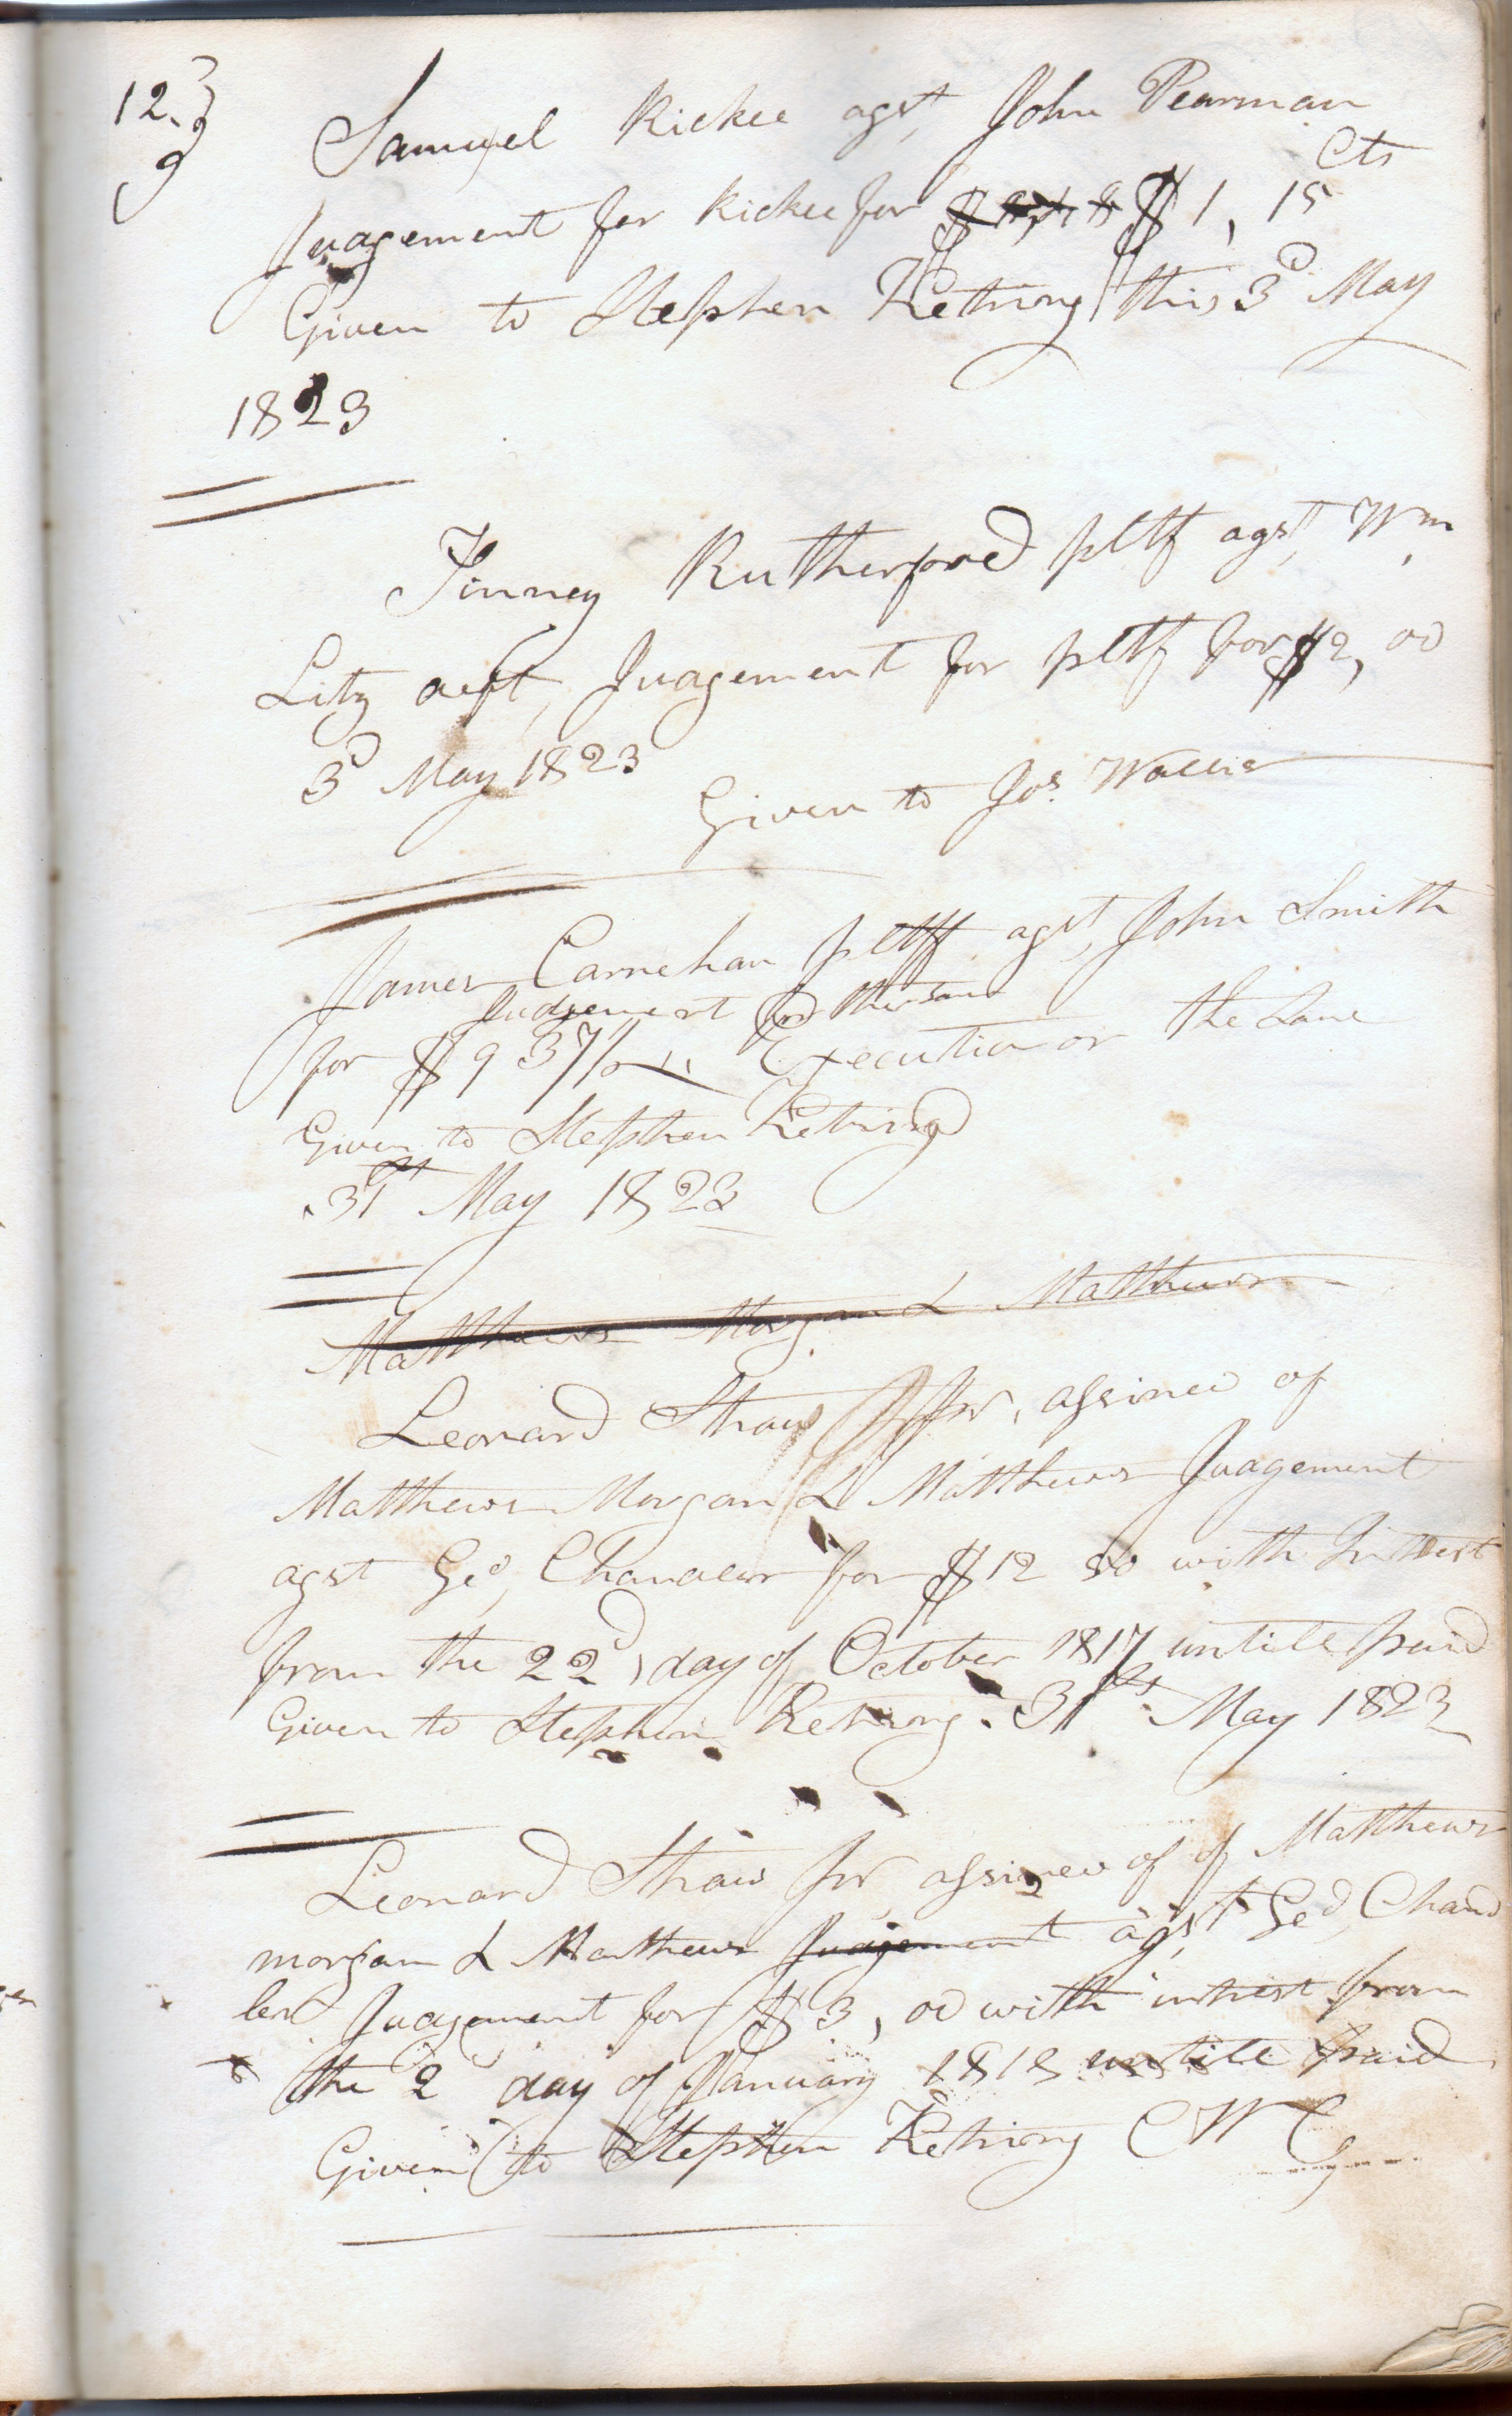 12.
Samuel Rickee agst, John Pearman
Judgement for Rickee for $ 1, 15 Cts
Given to Stephen Ketring this 3d May
1823
Rutherford pltf agst, Wm,
Litz deft, Judgement for pltf for $2, 00
3d May 1823
Given to Jos. Wallis
James Carnehan pltff agst, John Smith
Judgement for the same
for $ 9 37½ Execution on the same
Given to Stephen Ketring
31st May 1823
Matthews Morgan & Matthews
Leonard Shaw Jnr, assinee of
Matthews Morgan & Matthews Judgement
agst Geo, Chandler for $12 50 with Intrest
from the 22d, day of October 1817 untill paid
Given to Stephen Ketring. 31st May 1823
Leonard Shaw Jnr, assinee of of Matthews
morgan & Mathews Judgement agst Geo, Chand
ler Judgement for $ 3, 00 with intrest from
the 2 day of January 1818 untill paid
Given to Stephen Ketring